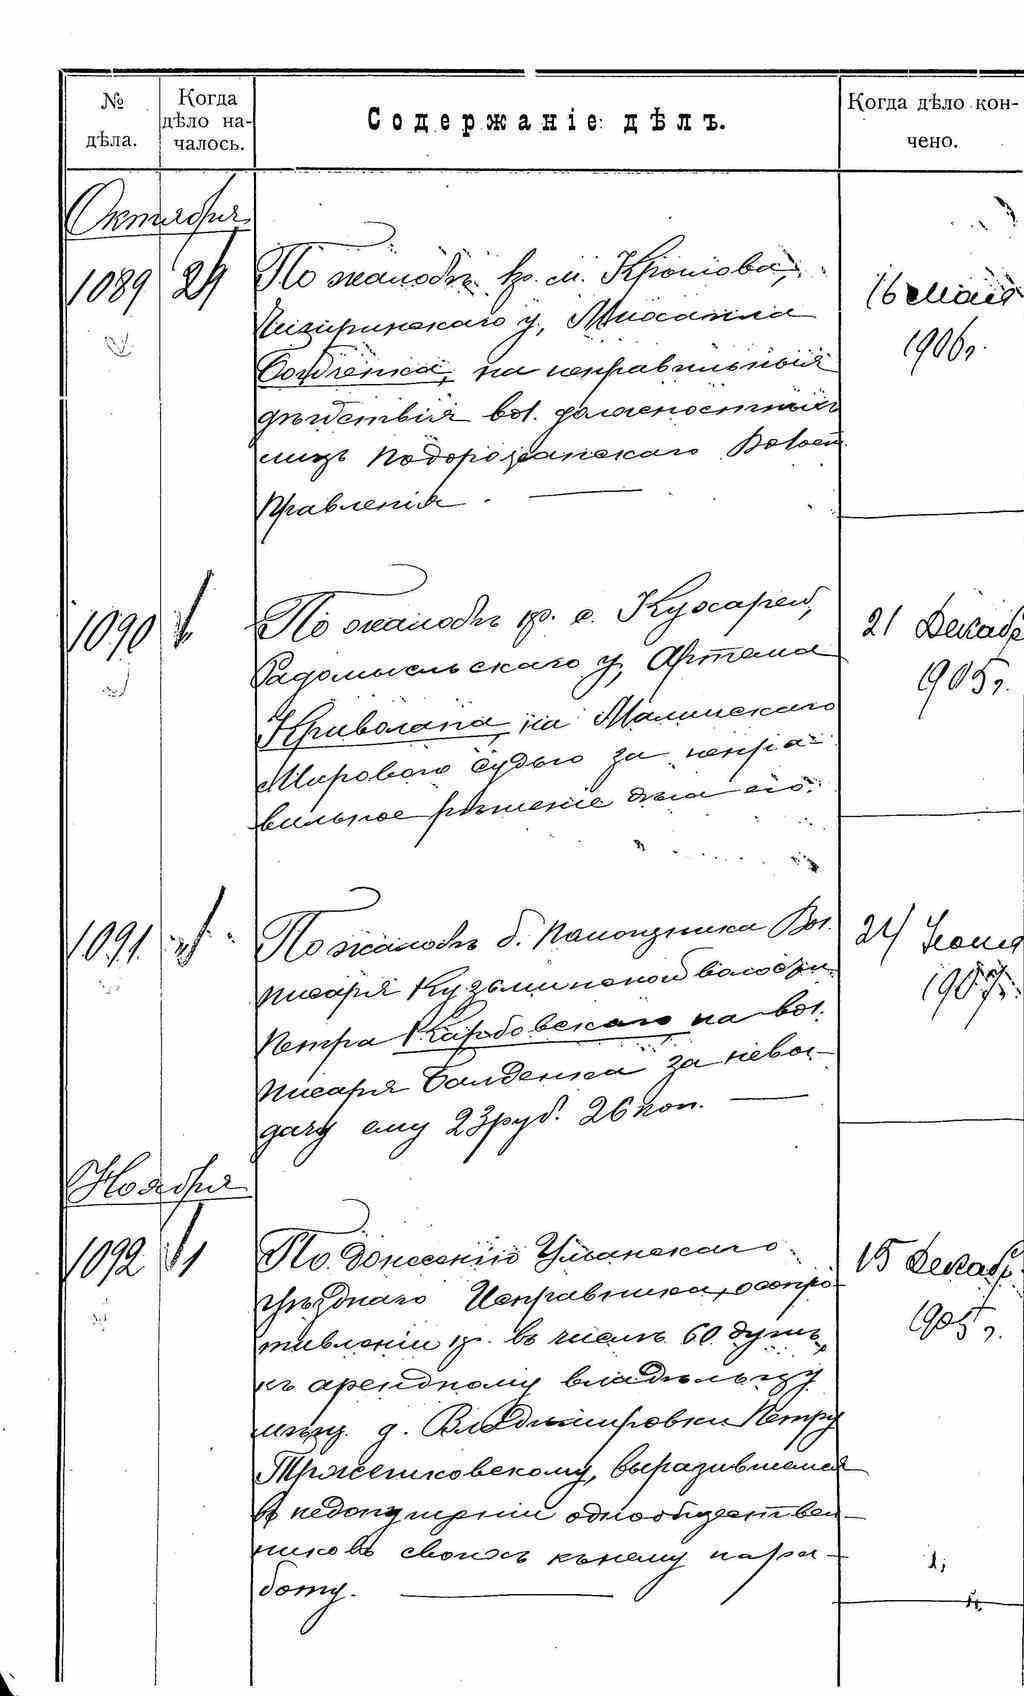 № дѣла.
Когда дѣло началось.
Содержаніе дѣлъ.
Когда дѣло кончено.
Октября
1089 29 По жалобѣ кр. м. Крылова,
Чигиринскаго у,
на неправильныя
дѣйствія вол. должностныхъ
лицъ Подорожанскаго Волост.
Правленія.
16 Мая
1906 г.
1090 По жалобѣ кр. с. Кухарей,
Радомысльскаго у, Артема
Криволапа, на Малинскаго
Мирового Судью за непра-
вильное рѣшеніе дѣла его.
21 Декабр
1905 г.
1091. По жалобѣ б. Помощника Вол.
писаря Кузьминской волости
Петра Карбовскаго на вол.
писаря Балденка за невы-
дачу ему 23 руб. 26 коп.
24 Іюня
1907 г.
Ноября
1092 1 По донесенію Уманскаго
уѣзднаго Исправника, о сопро-
тивленіи кр. въ числѣ 60 душъ,
къ арендному владѣльцу
д. Владиміровки Петру
выразившемся
въ недопущеніи однообществен-
никовъ своихъ къ нему на ра-
боту.
15 Декабр.
1905 г.